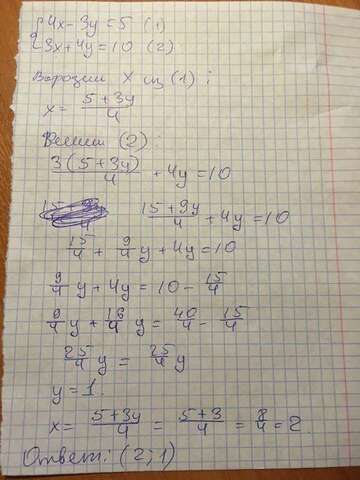 {4x - 3y = 5 (1)
3x + 4y = 10 (2)
Выразим x из (1):
x = (5 + 3y)/4
(2):
3(5 + 3y)/4 + 4y = 10
(15 + 9y)/4 + 4y = 10
15/4 + 9/4 y + 4y = 10
9/4 y + 4y = 10 - 15/4
9/4 y + 16/4 y = 40/4 - 15/4
25/4 y = 25/4 y
y = 1.
x = (5 + 3y)/4 = (5 + 3)/4 = 8/4 = 2.
Ответ: (2; 1)